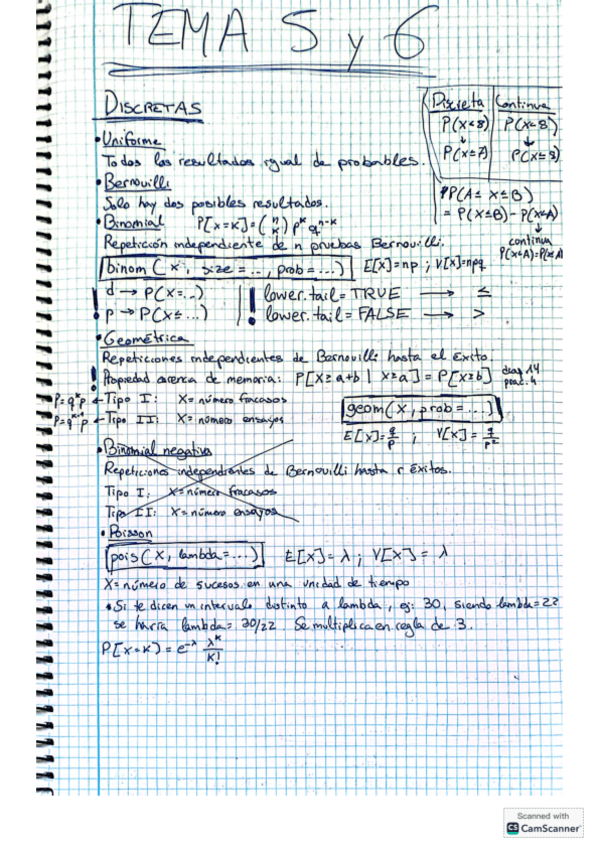 TEMA 5 y 6
DISCRETAS
Discreta | Continua
P(X<8) | P(X<8)
↓ ↓
P(X≤7) | P(X≤8)
P(A≤ X≤B)
= P(X≤B) - P(X≤A)
↓
continua
P(X<A)=P(X≤A)
• Uniforme
Todos los resultados igual de probables.
• Bernouilli
Solo hay dos posibles resultados.
• Binomial P[X=K]=(n K) p^K q^n-K
Repetición independiente de n pruebas Bernouilli.
binom (x, size = .., prob = ...) E[X]=np ; V[X]=npq
! d → P(X=..) ! lower.tail = TRUE → ≤
p → P(X≤...) lower.tail = FALSE → >
• Geométrica
Repeticiones independientes de Bernouilli hasta el éxito.
! Propiedad carencia de memoria: P[X≥a+b | X≥a] = P[X≥b] diap 14 pract. 4
P=q^K p ← Tipo I: X= número fracasos
P=q^K-1 p ← Tipo II: X= número ensayos geom(X, prob = ...)
E[X]=q/p ; V[X] = q/p²
• Binomial negativa
Repeticiones independientes de Bernouilli hasta r éxitos.
Tipo I: X= número fracasos
Tipo II: X= número ensayos
• Poisson
pois(X, lambda=...) E[X]= λ ; V[X] = λ
X= número de sucesos en una unidad de tiempo
• Si te dicen un intervalo distinto a lambda, ej: 30, siendo lambda=22
se haría lambda= 30/22. Se multiplica en regla de 3.
P[X=K) = e^-λ λ^K/K!
Scanned with
CS CamScanner